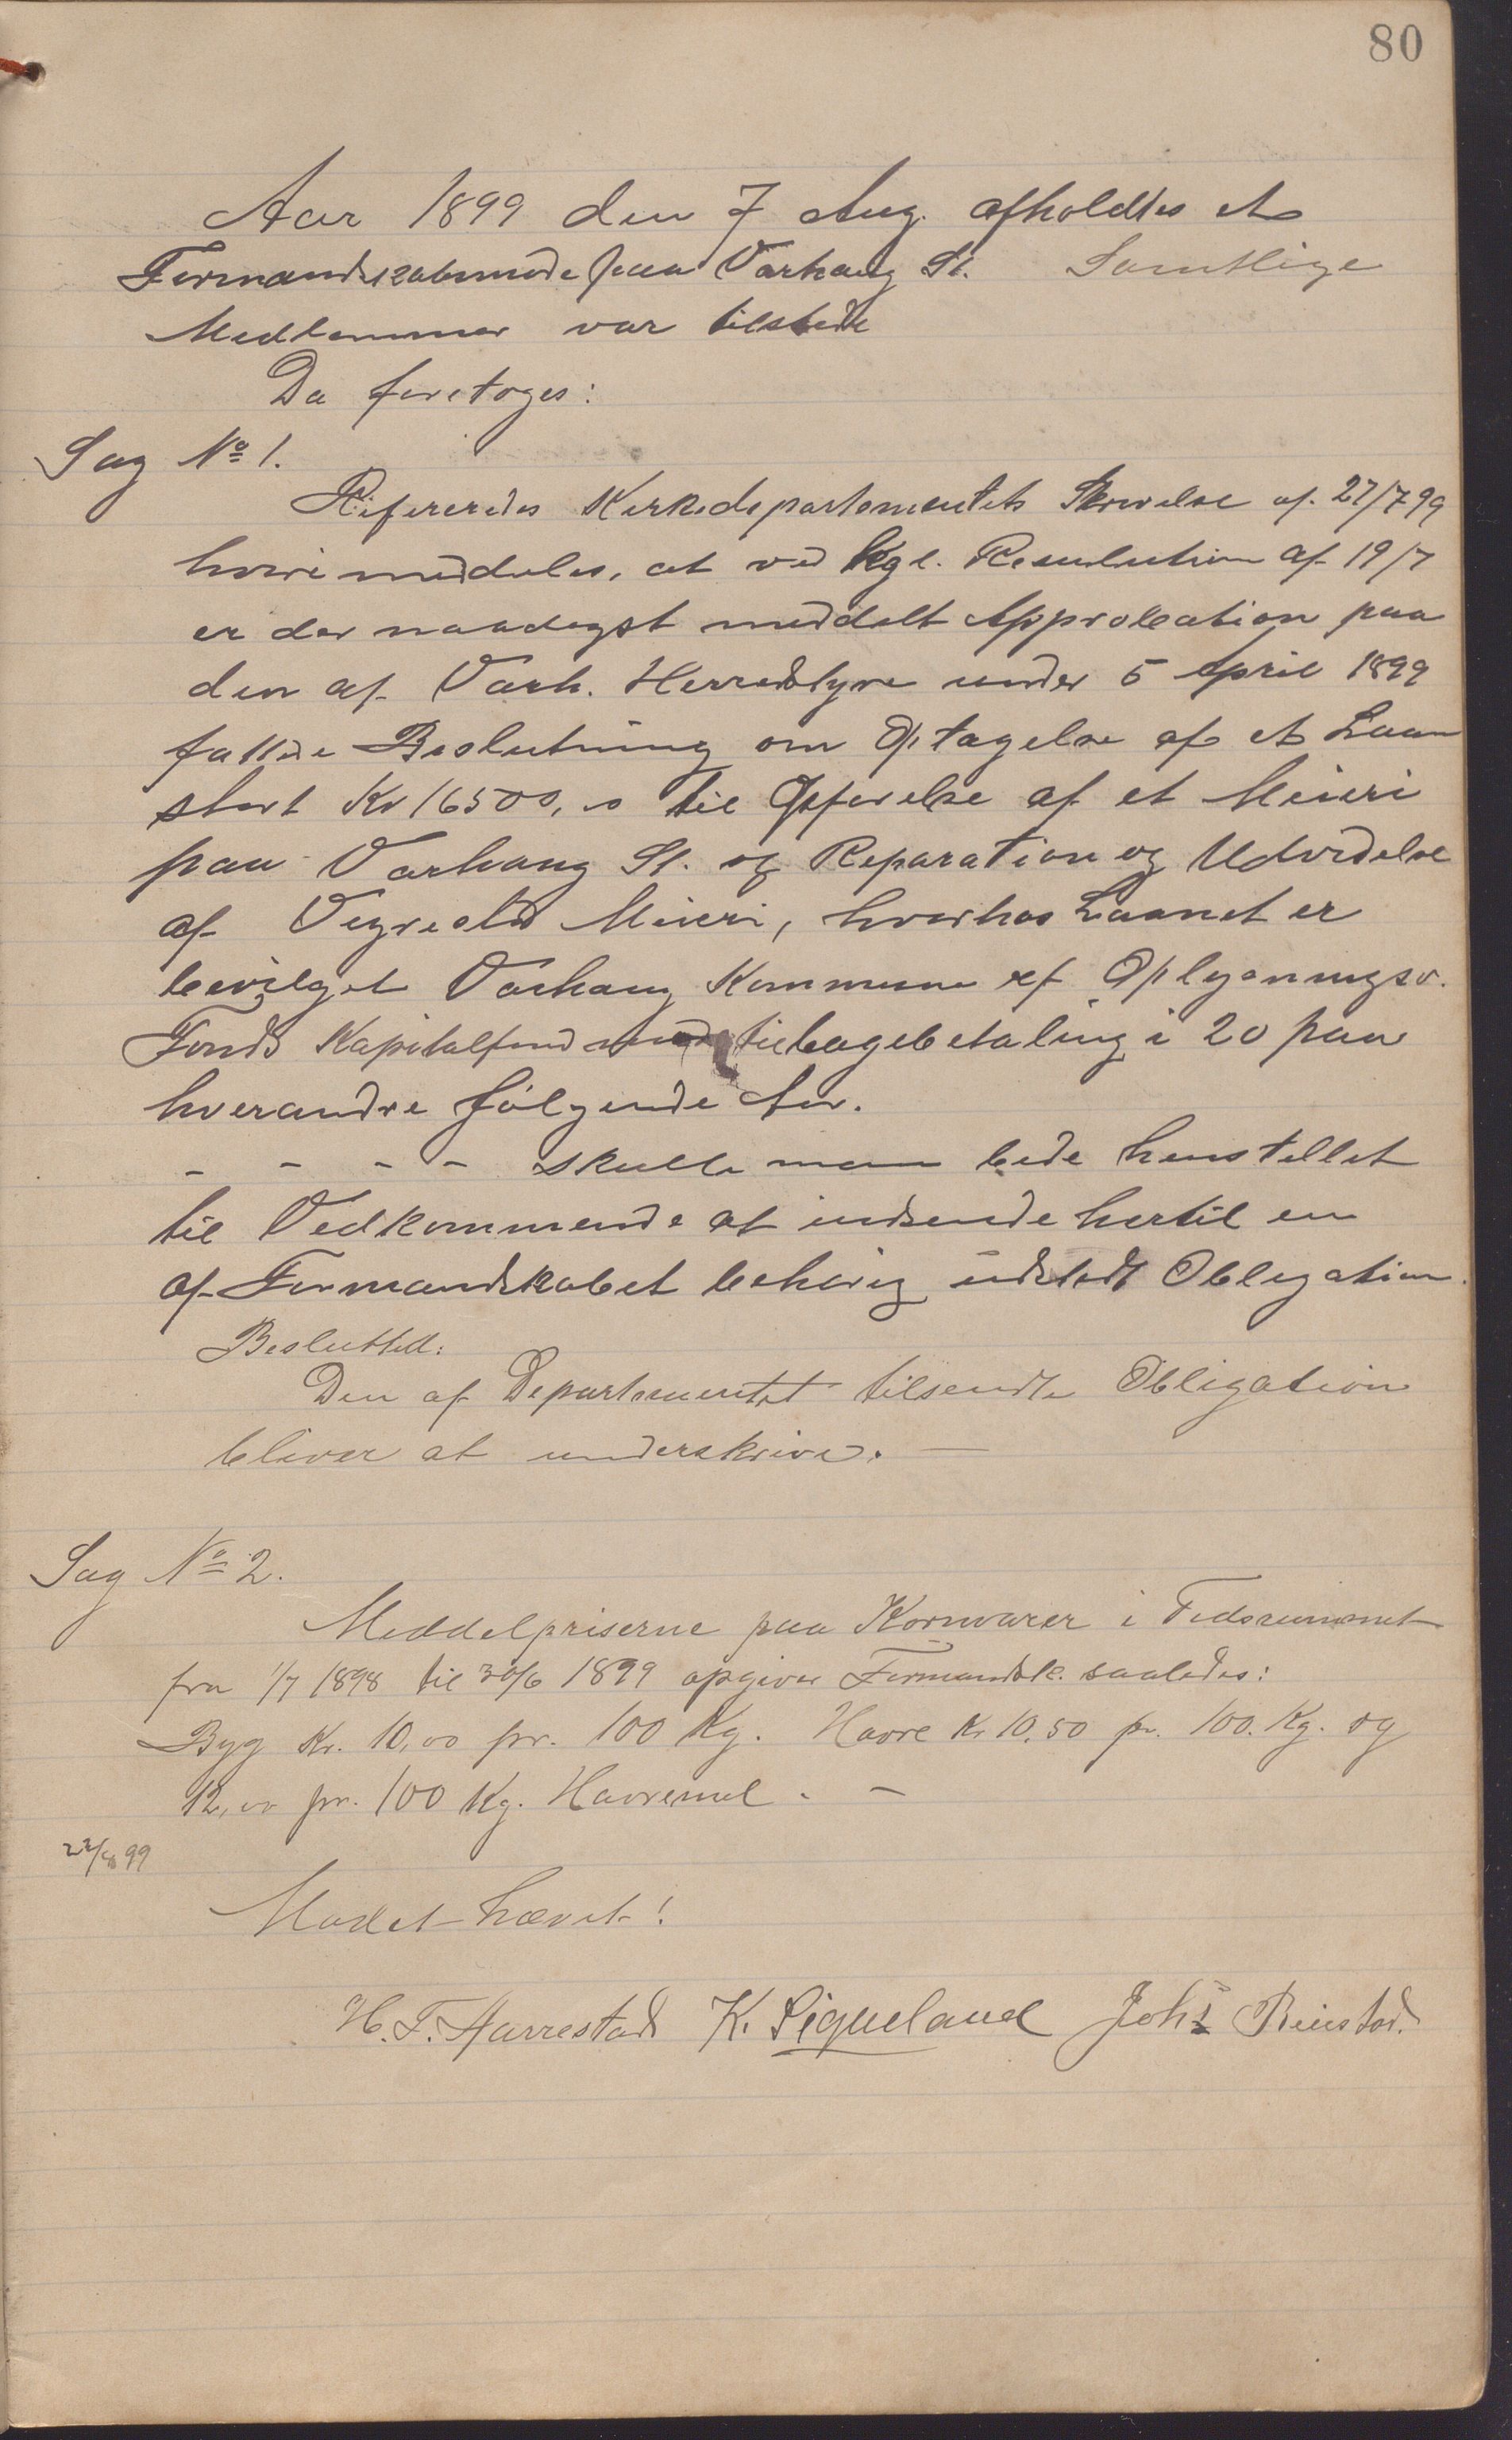 80
Aar 1899 den 7 Aug. afholdtes et
Formandskabsmøde paa Varhaug St. Samtlige
Medlemmer var tilstede
Da foretoges:
Sag No 1.
Refereredes Kirkedepartementets Skrivelse af 27/7 99
hvori meddeles, at ved Kgl. Resulution af 19/7
er der naadegst meddelt Approbation paa
den af Varh. Herredstyre under 5 April 1899
fattede Beslutning om Optagelse af et Laan
stort Kr 16500,00 til Opførelse af et Meieri
paa Varhaug St. og Reparation og Udvidelse
af Vigrestad Meieri, hvorhos Laanet er
bevilget Varhaug Kommune af Oplysningsv.
Fonds Kapitalfond mod tilbagebetaling i 20 paa
hverandre følgende Aar.
- - - - skulle man bede henstillet
til Vedkommende at indsende hertil en
af Formandskabet behørig udstedt Obligation.
Besluttet:
Den af Departementet tilsendte Obligation
bliver at underskrive. —
Sag No 2.
Meddelpriserne paa Kornvarer i Tidsrummet
fra 1/7 1898 til 30/6 1899 opgiver Formandsk. saaledes:
Byg Kr. 10,00 pr. 100 Kg. Havre Kr 10,50 pr. 100. Kg. og
12,00 pr. 100 Kg. Havremel. —
22/8 99
Mødet hævet!
H. T. Harrestad K. Sigveland Johs Reiestad.